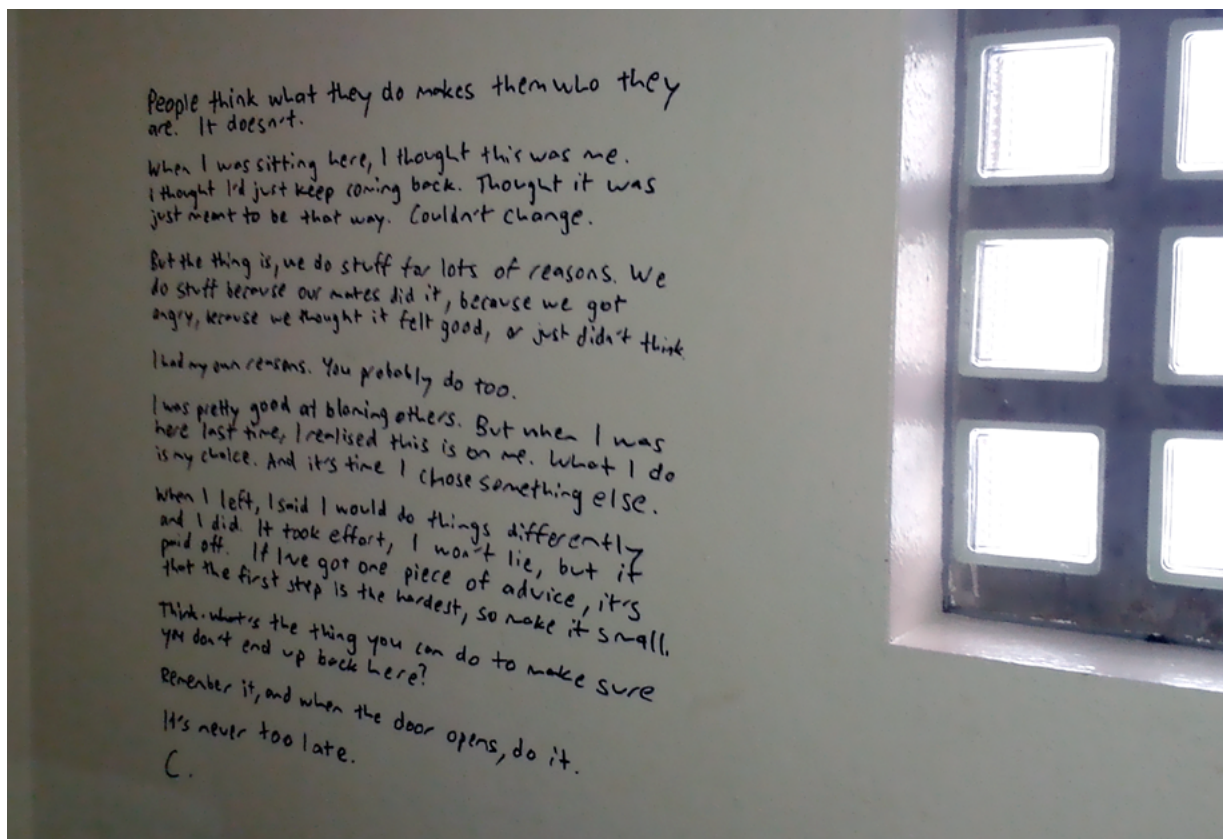 People think what they do makes them who they
are. It doesn't.
When I was sitting here, I thought this was me.
I thought I'd just keep coming back. Thought it was
just meant to be that way. Couldn't change.
But the thing is, we do stuff for lots of reasons. We
do stuff because our mates did it, because we got
angry, because we thought it felt good, or just didn't think.
I had my own reasons. You probably do too.
I was pretty good at blaming others. But when I was
here last time, I realised this is on me. What I do
is my choice. And it's time I chose something else.
When I left, I said I would do things differently
and I did. It took effort, I won't lie, but it
paid off. If I've got one piece of advice, it's
that the first step is the hardest, so make it small.
Think. what's the thing you can do to make sure
you don't end up back here?
Remember it, and when the door opens, do it.
It's never too late.
C.